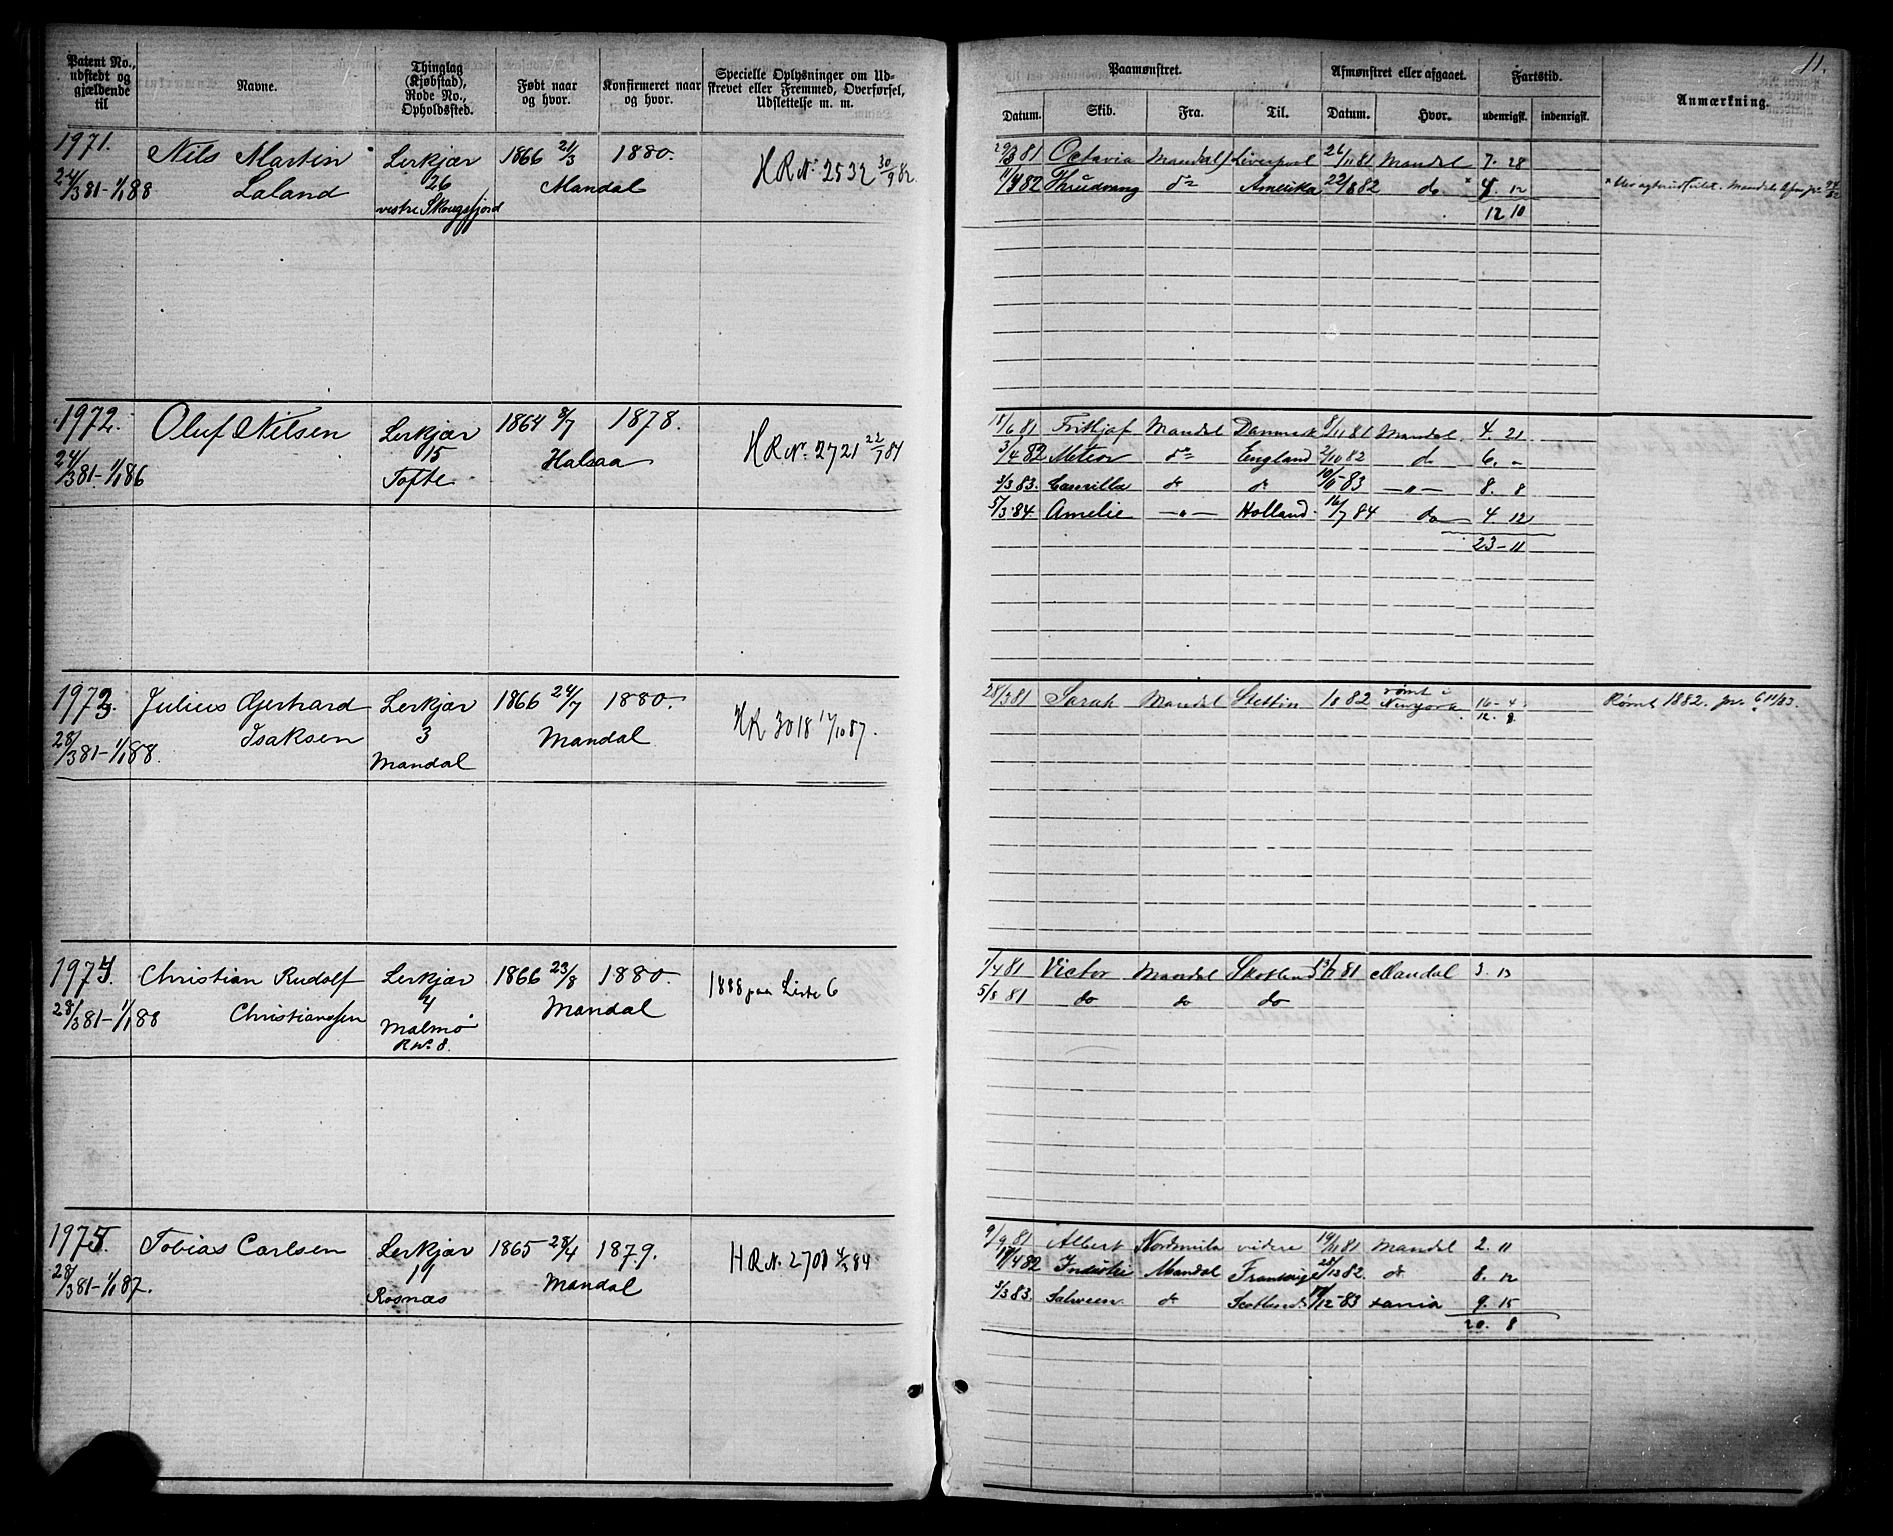 11.
Patent No., udstedt og gjældende til
Navne.
Thinglag (Kjøbstad), Rode No., Opholdssted.
Født naar og hvor.
Konfirmeret naar og hvor.
Specielle Oplysninger om Udskrevet eller Fremmed, Overførsel, Udslettelse m. m.
Paamønstret.
Afmønstret eller afgaaet.
Fartstid.
Anmærkning.
Datum. Skib. Fra. Til. Datum. Hvor. udenrigsk. indenrigsk.
1971. Nils Martin Lerkjær 1866 21/3 1880. HR No. 2532 30/9 82
24/3 81-1/1 88 Laland 26 Mandal
vestre Skougsfjord
29/3 81 Octavia Mandal Liverpool 26/11 81 Mandal 7. 28
11/4 82 Thrudvang do Amerika 22/8 82 do 4. 12
12 10
1972. Oluf Nilsen Lerkjær 1864 8/7 1878. HR No. 2721 22/7 84
24/3 81-1/1 86 15 Halsaa
Tofte
18/6 81 Frithjof Mandal Danmark 8/11 81 Mandal. 4. 21
3/4 82 Meteor do England 2/10 82 do 6. "
3/3 83. Camilla do do 10/11 83 — " — 8. 8
5/3 84. Amelie — " — Holland 16/7 84 do 4. 12
23-11
1973. Julius Gerhard Lerkjær 1866 24/7 1880. HR 3018 14/10 87.
28/3 81-1/1 88. Isaksen 3 Mandal
Mandal
28/3 81 Sarah Mandal Stettin 1882 rømt i Newyork 16-4 Rømt 1882.
12. 8
1974. Christian Rudolf Lerkjær 1866 23/8 1880. 1888 paa Liste 6
28/3 81-1/1 88 Christianssen 4 Mandal
Malmø
R No. 8.
1/4 81 Victor Mandal Skotland 81 Mandal 3. 13
5/8 81 do do do
1975. Tobias Carlsen Lerkjær 1865 28/4 1879. HR No. 2701 4/3 84
28/3 81-1/1 87. 19 Mandal
Rosnæs
9/9 81 Albert videre 19/11 81 Mandal 2. 11
18/4 82 Industri Mandal Frankrige 28/12 82. do 8. 12
3/3 83. Salveen do Scotland 17/12-83 xania 9. 15
20. 8